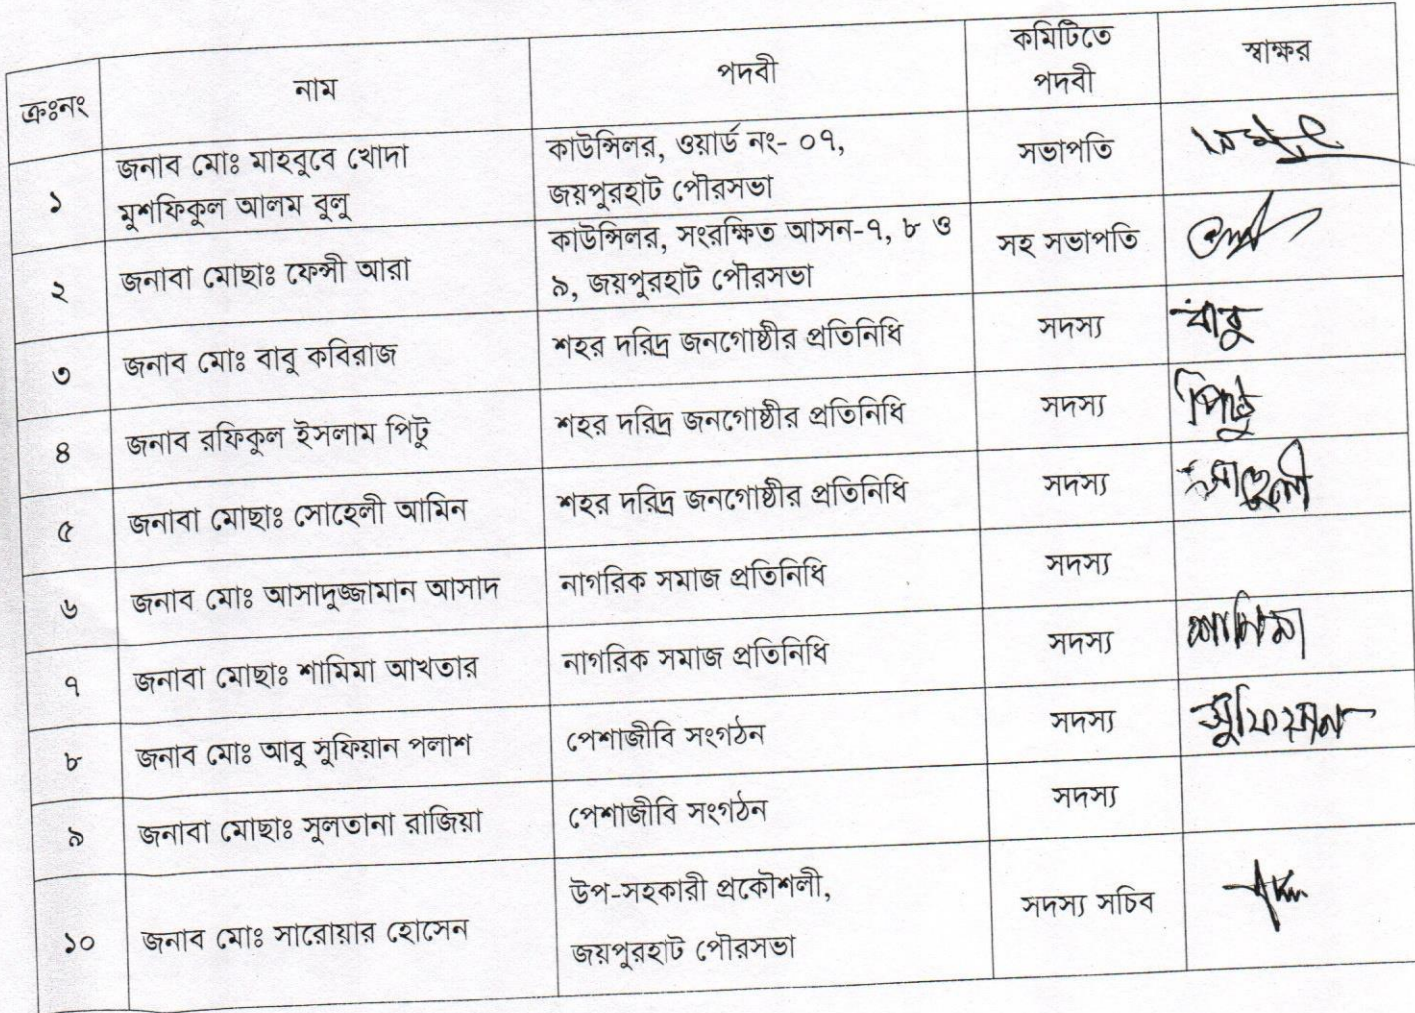 ক্রঃনং নাম পদবী কমিটিতে পদবী স্বাক্ষর
১ জনাব মোঃ মাহবুবে খোদা মুশফিকুল আলম বুলু কাউন্সিলর, ওয়ার্ড নং- ০৭, জয়পুরহাট পৌরসভা সভাপতি
২ জনাবা মোছাঃ ফেন্সী আরা কাউন্সিলর, সংরক্ষিত আসন-৭, ৮ ও ৯, জয়পুরহাট পৌরসভা সহ সভাপতি
৩ জনাব মোঃ বাবু কবিরাজ শহর দরিদ্র জনগোষ্ঠীর প্রতিনিধি সদস্য বাবু
৪ জনাব রফিকুল ইসলাম পিটু শহর দরিদ্র জনগোষ্ঠীর প্রতিনিধি সদস্য পিটু
৫ জনাবা মোছাঃ সোহেলী আমিন শহর দরিদ্র জনগোষ্ঠীর প্রতিনিধি সদস্য সোহেলী
৬ জনাব মোঃ আসাদুজ্জামান আসাদ নাগরিক সমাজ প্রতিনিধি সদস্য
৭ জনাবা মোছাঃ শামিমা আখতার নাগরিক সমাজ প্রতিনিধি সদস্য শামিমা
৮ জনাব মোঃ আবু সুফিয়ান পলাশ পেশাজীবি সংগঠন সদস্য সুফিয়ান
৯ জনাবা মোছাঃ সুলতানা রাজিয়া পেশাজীবি সংগঠন সদস্য
১০ জনাব মোঃ সারোয়ার হোসেন উপ-সহকারী প্রকৌশলী, জয়পুরহাট পৌরসভা সদস্য সচিব